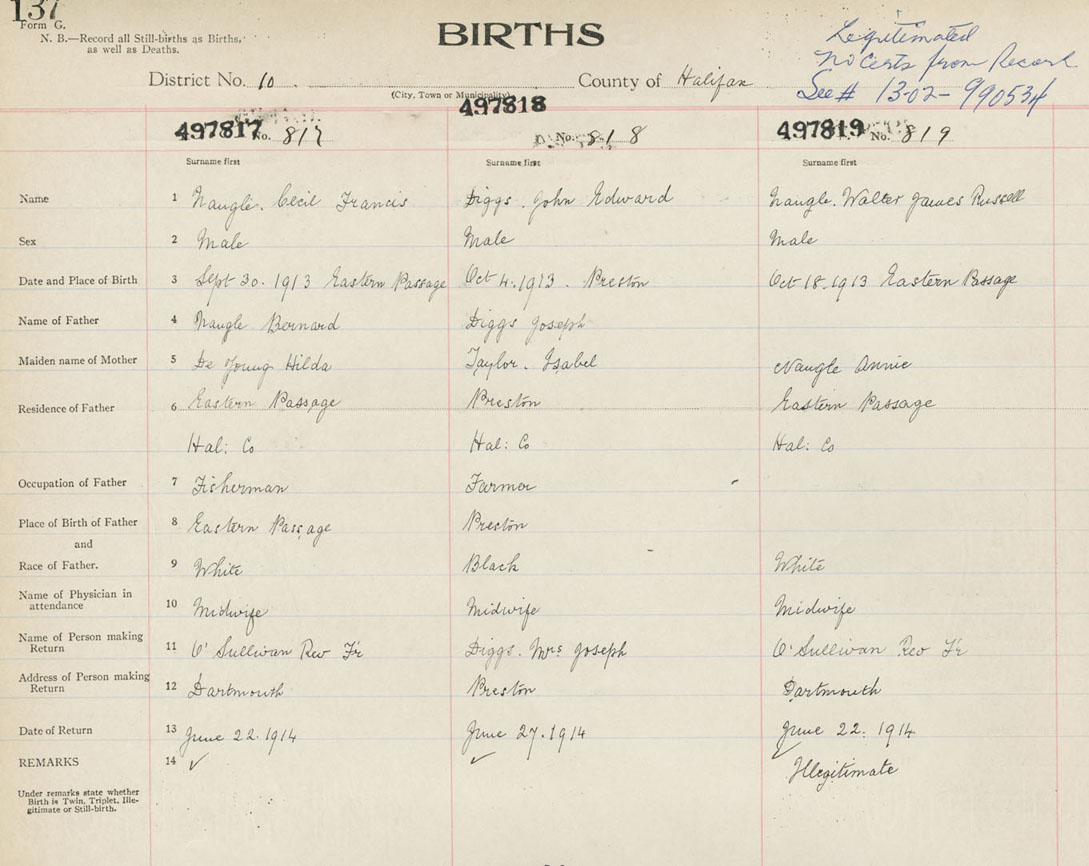 137
Form G.
N. B.—Record all Still-births as Births,
as well as Deaths.
BIRTHS
Legitimated
No Certs from Record
See # 13-02-990534
District No. 10
County of Halifax
(City, Town or Municipality)
497817 No. 817
497818 No. 818
497819 No. 819
Surname first Surname first Surname first
Name 1 Nangle. Cecil Francis Diggs. John Edward Nangle. Walter James Russell
Sex 2 Male Male Male
Date and Place of Birth 3 Sept 30. 1913 Eastern Passage Oct 4. 1913. Preston Oct 18. 1913 Eastern Passage
Name of Father 4 Nangle Bernard Diggs Joseph
Maiden name of Mother 5 De Young Hilda Taylor. Isabel Naugle Annie
Residence of Father 6 Eastern Passage Preston Eastern Passage
Hal: Co Hal: Co Hal: Co
Occupation of Father 7 Fisherman Farmer
Place of Birth of Father 8 Eastern Passage Preston
and
Race of Father. 9 White Black White
Name of Physician in
attendance 10 Midwife Midwife Midwife
Name of Person making
Return 11 O' Sullivan Rev Fr Diggs. Mrs Joseph O' Sullivan Rev Fr
Address of Person making
Return 12 Dartmouth Preston Dartmouth
Date of Return 13 June 22. 1914 June 27. 1914 June 22. 1914
REMARKS 14 ✓ ✓ ✓ Illegitimate
Under remarks state whether
Birth is Twin, Triplet, Ille-
gitimate or Still-birth.